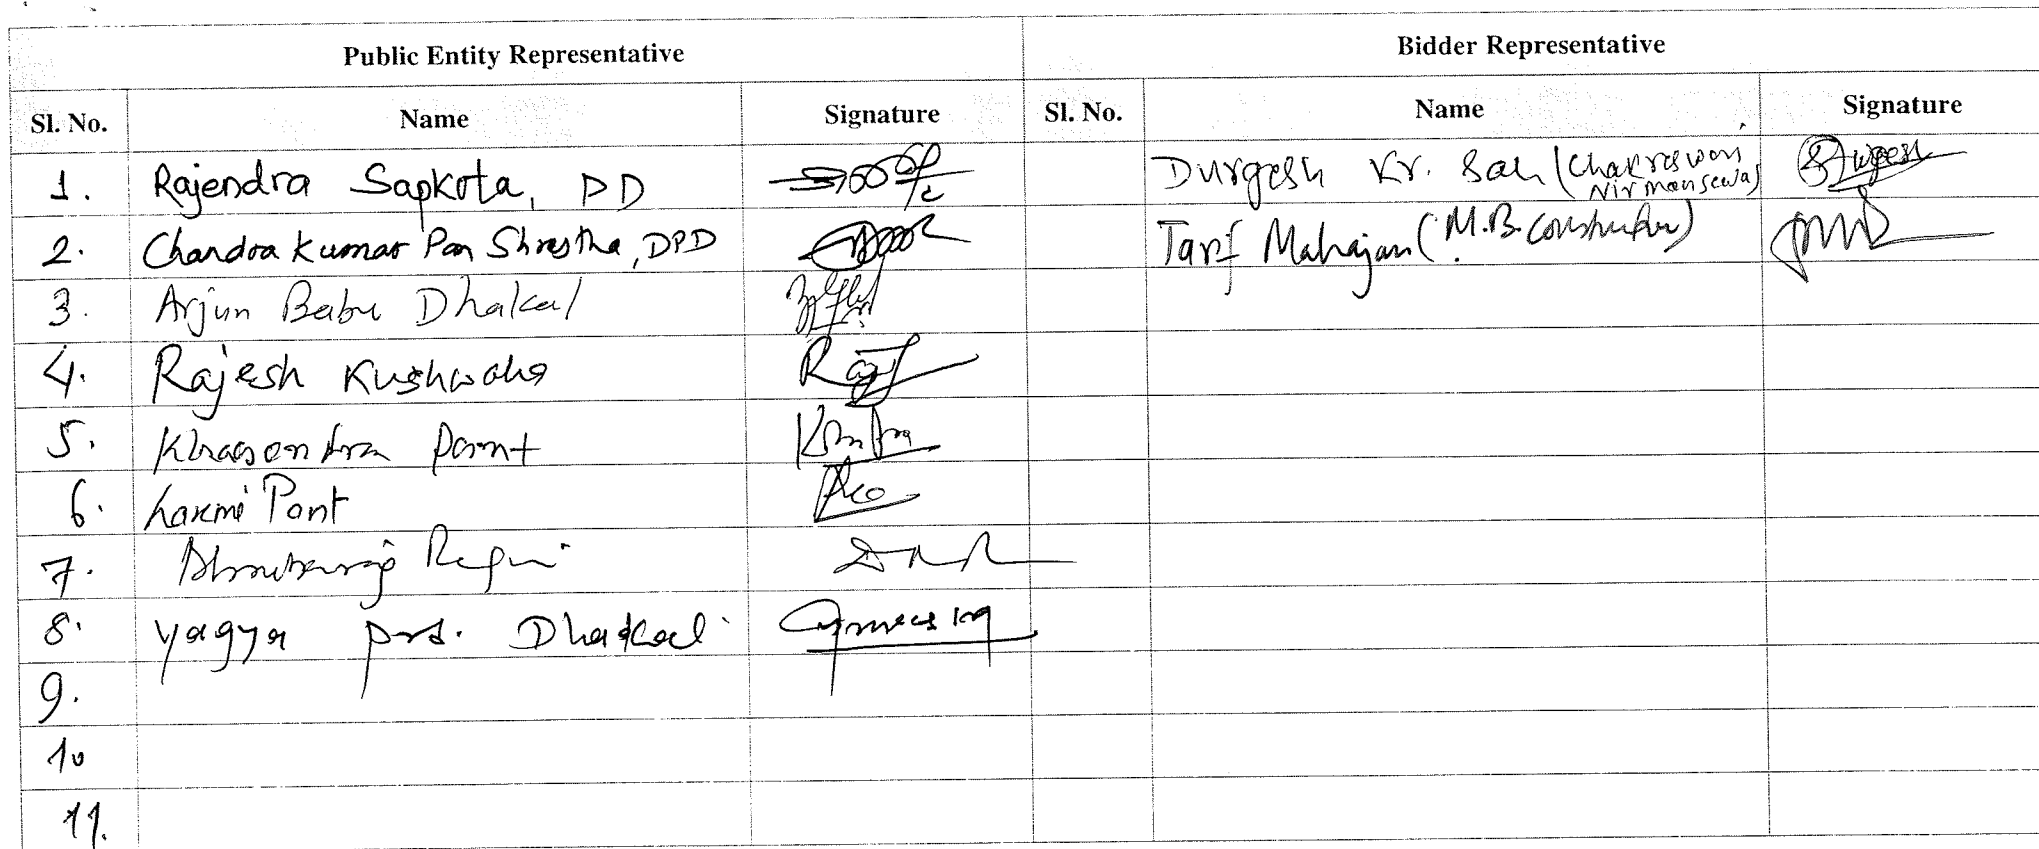 Public Entity Representative Bidder Representative
Sl. No. Name Signature Sl. No. Name Signature
1. Rajendra Sapkota, PD Durgesh Kr. Sah (Chakreswori
Nirman sewa)
2. Chandra Kumar Pan Shrestha, DPD Tarif Mahajan (M.B. construction)
3. Arjun Babu Dhakal
4. Rajesh Kushwaha
5. Pant
6. Laxmi Pant
7.
8. Yagya prd. Dhakal
9.
10
11.